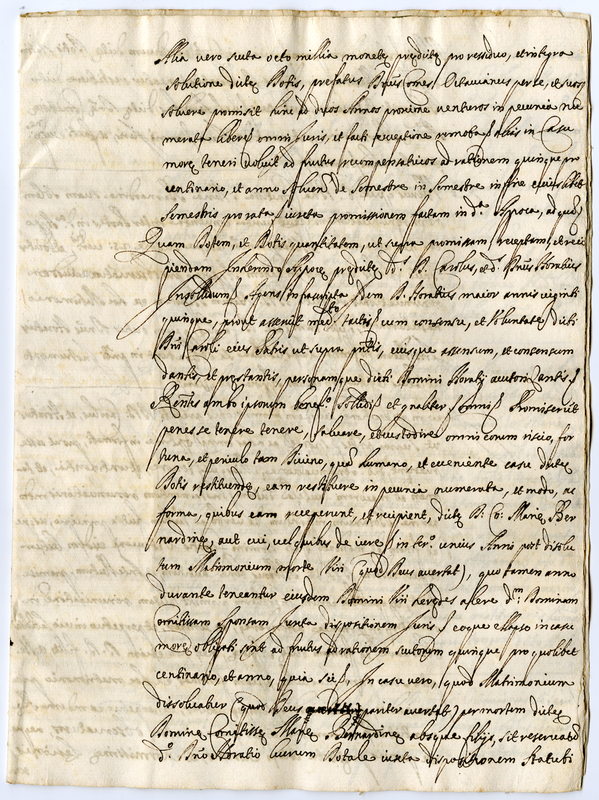 Alia vero scuta octo millia monetę prędictę pro residuo, et integra
solutione dictę Dotis, prefatus D. Comes Octavianus per se, et suos
solvere promisit hinc ad duos Annos proxime venturos in pecunia nu
merata liberè omni iuris, et facti exceptione remota, alias in Casu
morę teneri voluit ad fructus recompensativos ad rationem quinque pro
centinario, et anno solven. de Semestre in Semestre in fine cuiuslibet
Semestris pro rata iuxta promissionem factam in d.ta Apoca, ad quā
Quam Dotem, et Dotis quantitatem, ut supra promissam, receptam, et reci
piendam in
prędictę d. D. Carolus, et d. Dnus Horatius
Dem D. Horatius maior annis viginti
quinque, prout asseruit med.to tactis cum consensu, et voluntate dicti
Dni Caroli eius Patris ut supra pntis, eiusque assensum, et consensum
dantis, et prestantis, personamque dicti Domini Horatij auctorizantis
ambo ipsorum et promiserunt
penes se tenere tenere, salvare, et custodire omni eorum risico, for
tuna, et periculo tam Divino, quā humano, et eveniente casu dictę
Dotis restituendę, eam restituere in pecunia numerata, et modo, ac
forma, quibus eam receperunt, et recipient, dictę D. Co: Marię Ber
nardinę, aut cui, vel quibus de iure in ter.o unius Anni post dissolu
tum Matrimonium morte Viri (quod Deus avertat), quo tamen anno
durante teneantur eiusdem Domini Viri heredes alere d.m Dominam
Comitissam Sponsam iuxta dispositionem Iuris, eoque elapso in casu
morę obligati sint ad fructus ad rationem scutorum quinque pro quolibet
centinario, et anno, quia sic, In casu vero, quod Matrimonium
dissolveatur (quod Deus pariter avertat) per mortem dictę
Dominę Comitissę Marię Bernardinę absque filijs, sit reservatū
d.o Dno Horatio lucrum Dotale iuxta dispositionem Statuti